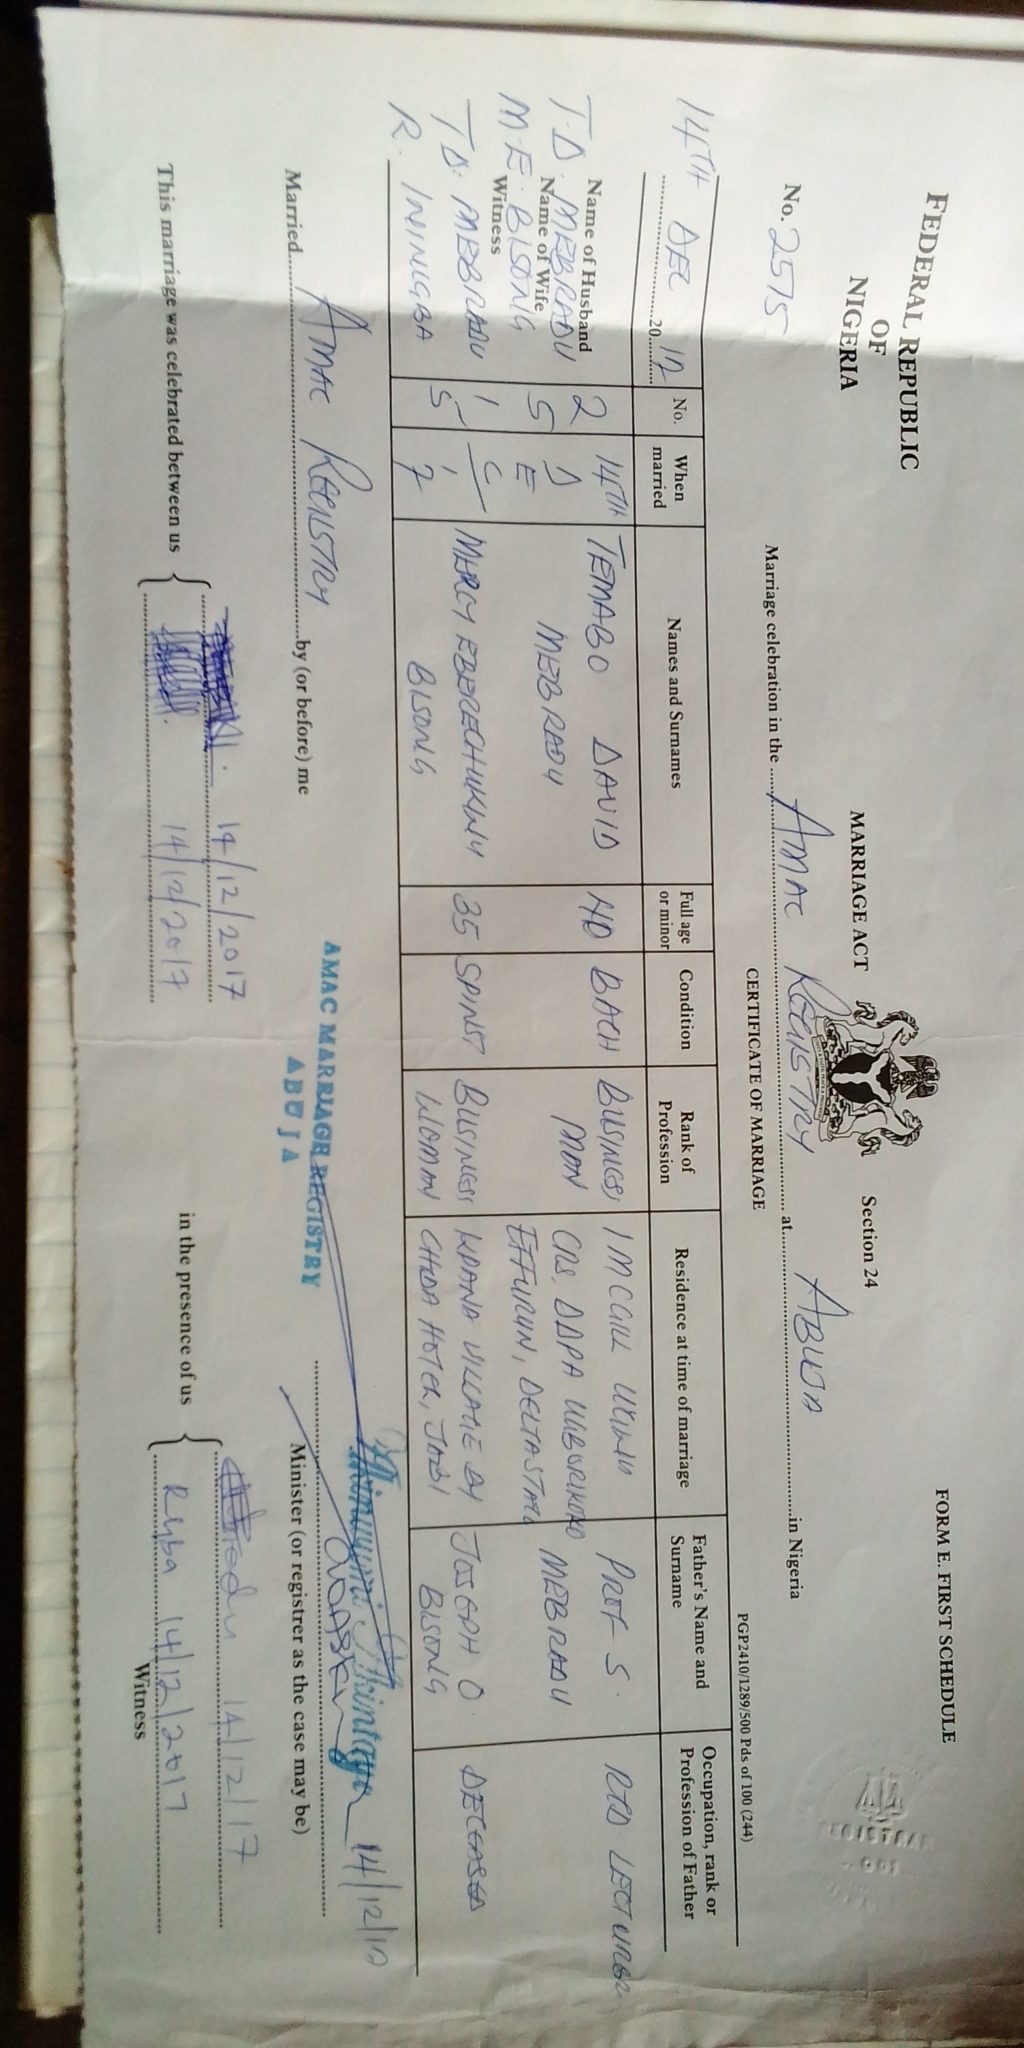 FORM E. FIRST SCHEDULE
FEDERAL REPUBLIC
OF
NIGERIA
MARRIAGE ACT
Section 24
CERTIFICATE OF MARRIAGE
PGP2410/1289/500 Pds of 100 (244)
No. 2575
Marriage celebration in the AMAC REGISTRY at ABUJA in Nigeria
14TH DEC 20 17
No.
When married
Names and Surnames
Full age or minor
Condition
Rank of Profession
Residence at time of marriage
Father's Name and Surname
Occupation, rank or Profession of Father
Name of Husband
T. D. MEBRADU
Name of Wife
M. E. BISONG
Witness
T D. MEBRADU
R. ININGBA
2 5 1 5
14TH
D E C
17
TEMABO DAVID
MEBRADU
40
BACH
BUSINESS
MAN
1 MCGILL
CRS, DDPA
EFFURUN, DELTA STATE
PROF S.
MEBRADU
RTD LECTURER
MERCY EBERECHUKWU
BISONG
35
SPINST
BUSINESS
WOMAN
KPANA VILLAGE BY
CHIDA HOTEL, JABI
JOSEPH O
BISONG
DECEASED
Married AMAC REGISTRY by (or before) me
14/12/17
Minister (or registrer as the case may be)
AMAC MARRIAGE REGISTRY
ABUJA
This marriage was celebrated between us
14/12/2017
14/12/2017
in the presence of us
14/12/17
14/12/2017
Witness
REGISTRAR